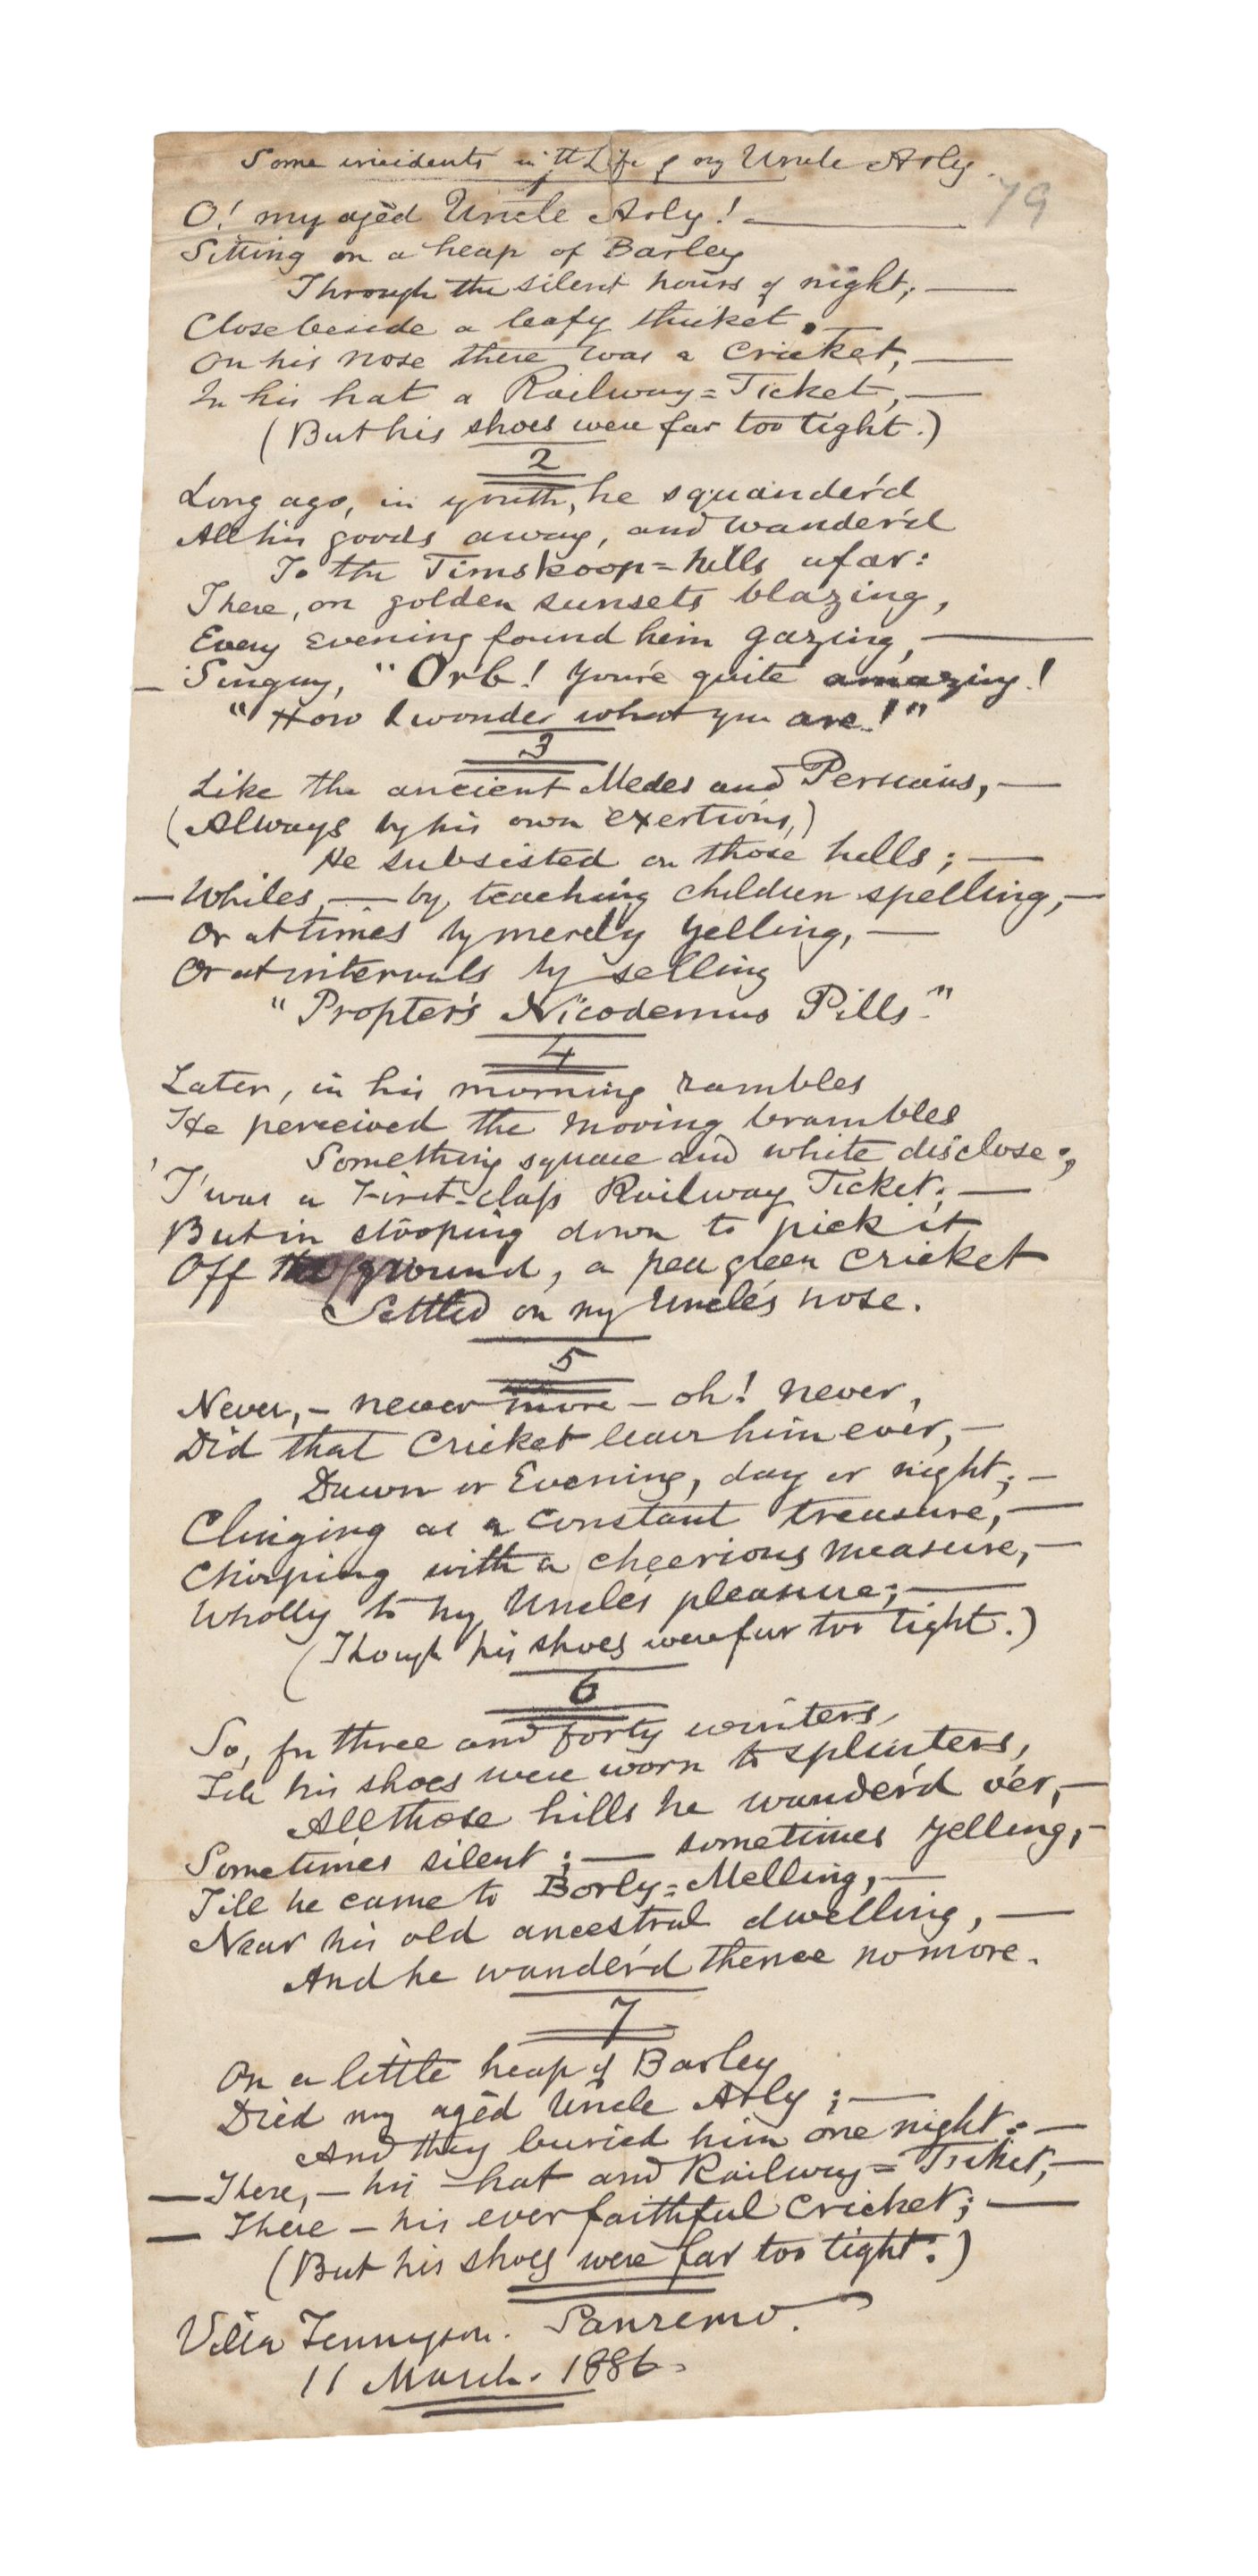 Some incidents in the Life of my Uncle Arly.
79
1
O! my agèd Uncle Arly! —
Sitting on a heap of Barley
Through the silent hours of night; —
Close beside a leafy thicket. —
On his nose there was a cricket, —
In his hat a Railway=Ticket, —
(But his shoes were far too tight.)
2
Long ago, in youth, he squander'd
All his goods away, and wander'd
To the Timskoop=hills afar:
There, on golden sunsets blazing,
Every evening found him gazing, —
— Singing, "Orb! You're quite amazing!
"How I wonder what you are!"
3
Like the ancient Medes and Persians, —
(Always by his own exertions,)
He subsisted on those hills; —
— Whiles, — by teaching children spelling, —
Or at times by merely yelling, —
Or at intervals by selling
"Propter's Nicodemus Pills."
4
Later, in his morning rambles
He perceived the moving brambles
Something square and white disclose;
'T'was a First=class Railway Ticket; —
But in stooping down to pick it
Off the ground, a pea green cricket
Settled on my Uncle's nose.
5
Never, — never more — oh! never,
Did that Cricket leave him ever, —
Dawn or Evening, day or night; —
Clinging as a constant treasure, —
Chirping with a cheerious measure, —
Wholly to my Uncle's pleasure; —
(Though his shoes were far too tight.)
6
So, for three and forty winters,
Till his shoes were worn to splinters,
All those hills he wander'd o'er, —
Sometimes silent; — sometimes yelling, —
Till he came to Borly=Melling, —
Near his old ancestral dwelling, —
And he wander'd thence no more.
7
On a little heap of Barley
Died my agèd Uncle Arly; —
And they buried him one night: —
— There, — his hat and Railway=Ticket, —
— There — his ever faithful cricket; —
(But his shoes were far too tight.)
Villa Tennyson. Sanremo.
11 March. 1886.